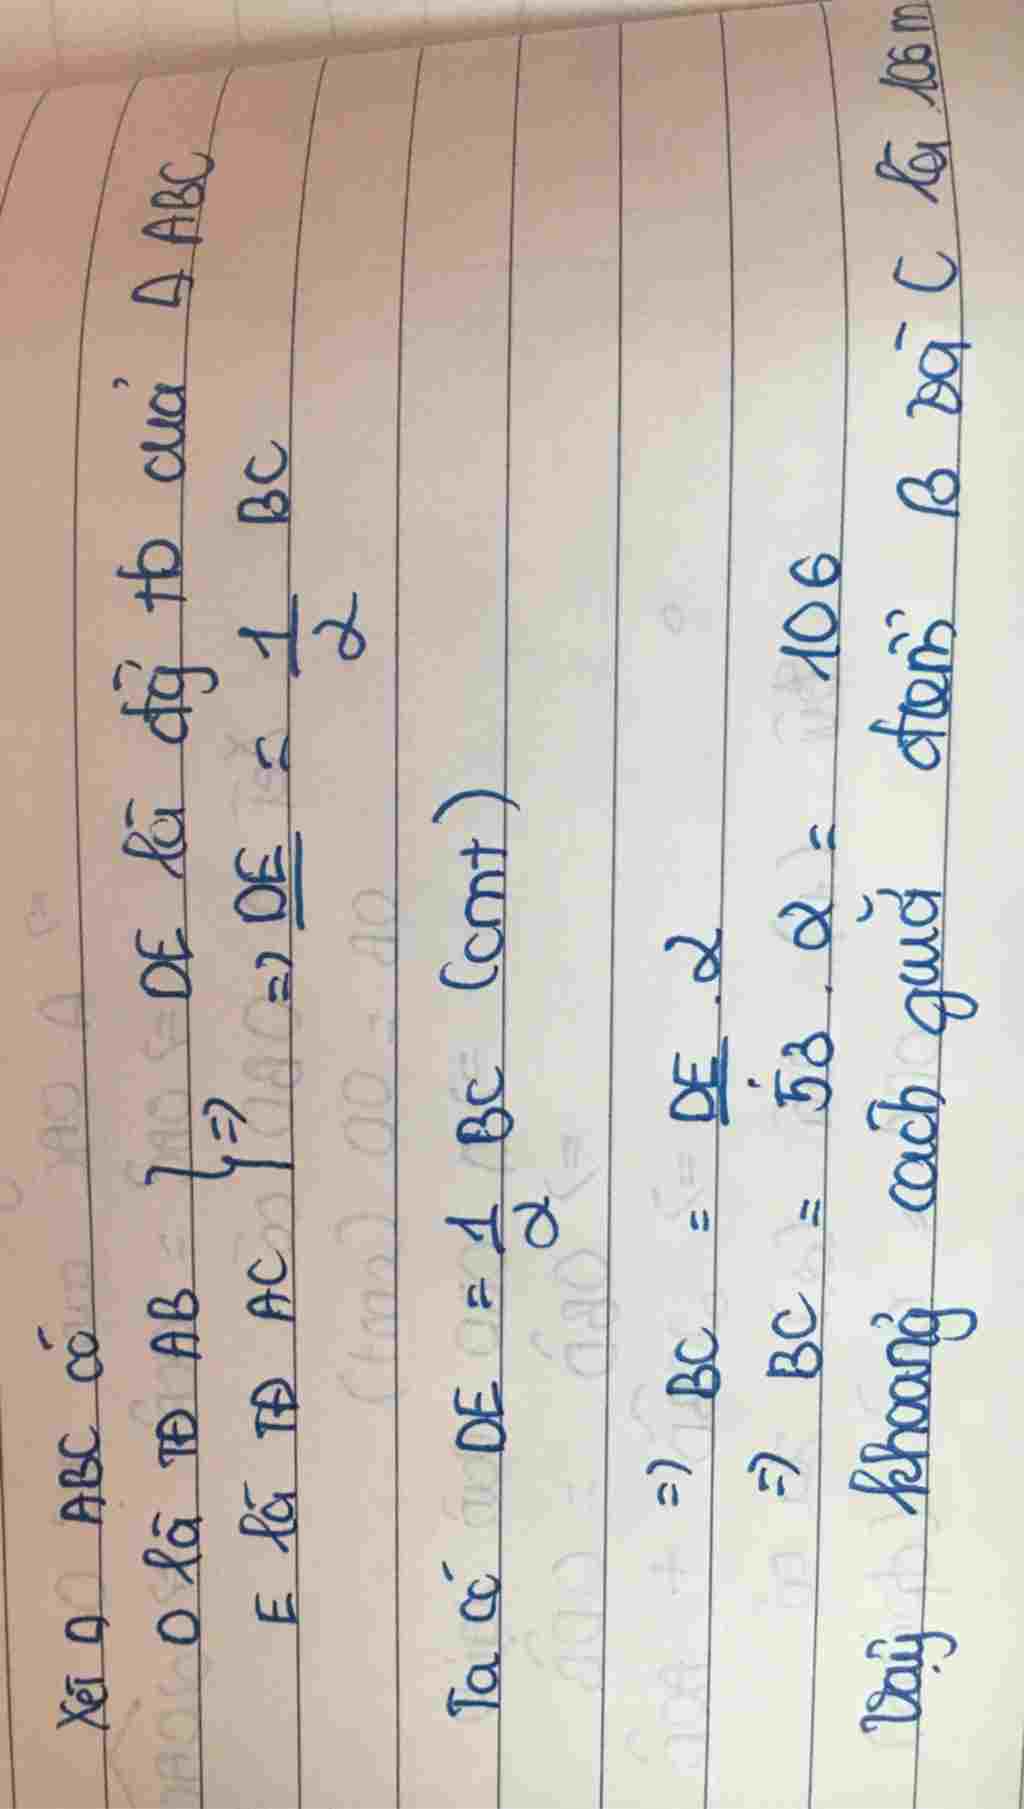 Xét Δ ABC có
D là TĐ AB } => DE là đg tb của Δ ABC
E là TĐ AC => DE = 1/2 BC
Ta có DE = 1/2 BC (cmt)
=> BC = DE . 2
=> BC = 53 . 2 = 106
Vậy khoảng cách giữa điểm B và C là 106 m